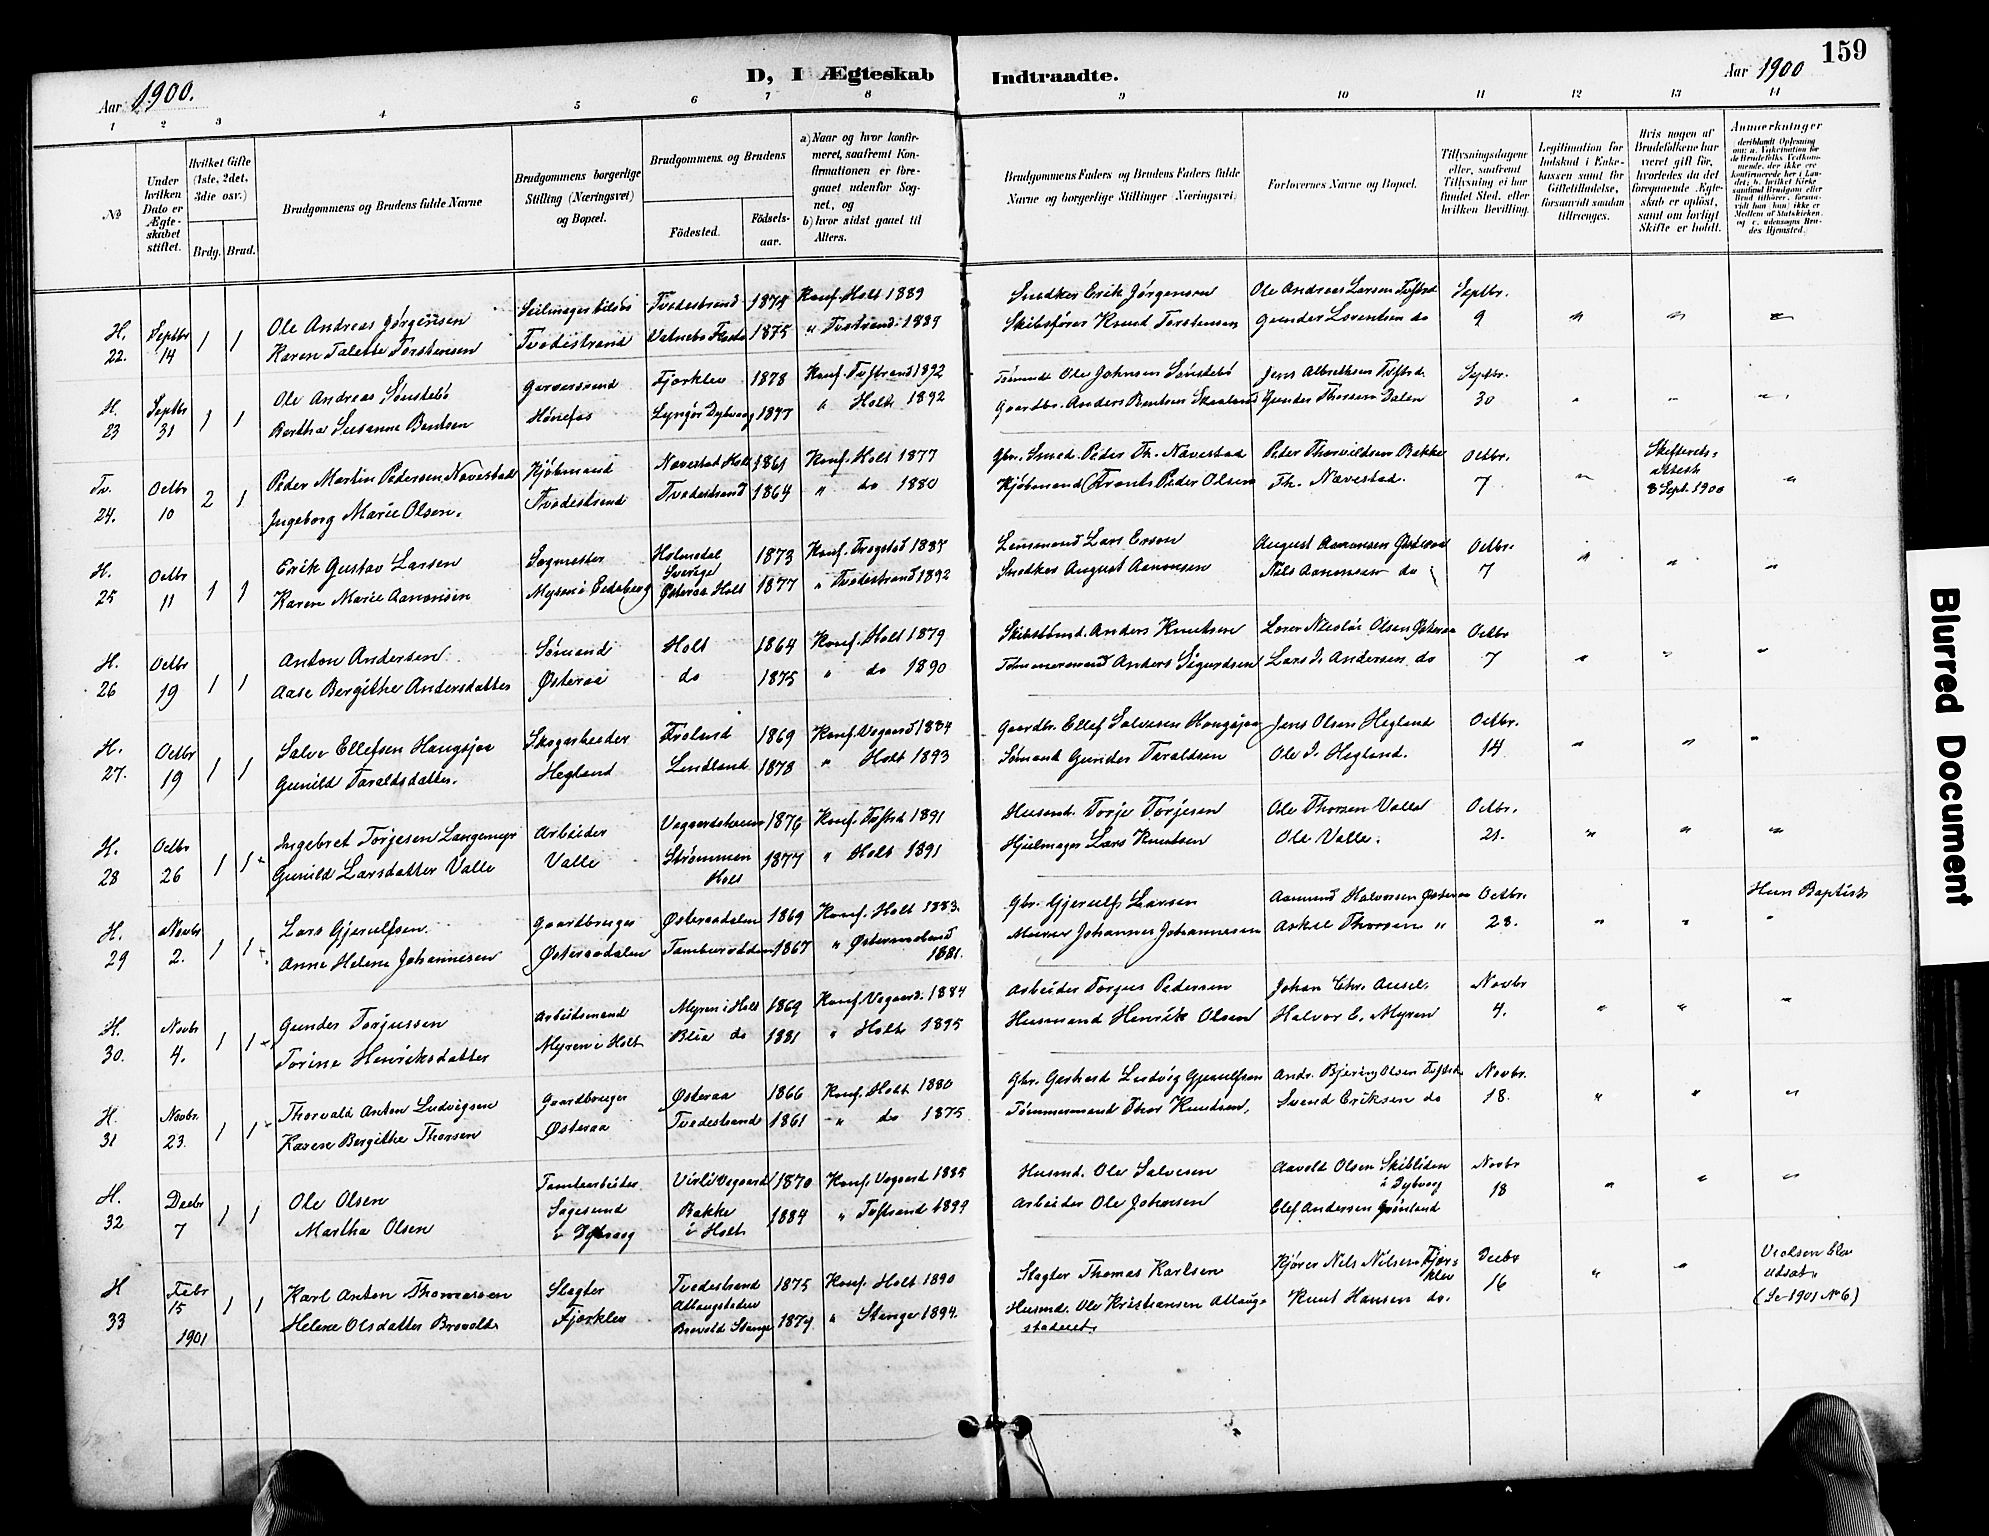 159
Aar 1900.
D, I Ægteskab Indtraadte.
Aar 1900
1 2 3 4 5 6 7 8 9 10 11 12 13 14
№
Under hvilken Dato er Ægteskabet stiftet.
Hvilket Gifte (1ste, 2det, 3die osv.)
Brdg. Brud.
Brudgommens og Brudens fulde Navne
Brudgommens borgerlige Stilling (Næringsvei) og Bopæl.
Brudgommens og Brudens
Födested.
Födsels-aar.
a) Naar og hvor konfirmeret, saafremt Konfirmationen er foregaaet udenfor Sognet, og
b) hvor sidst gaaet til Alters.
Brudgommens Faders og Brudens Faders fulde Navne og borgerlige Stillinger (Næringsvei)
Forlovernes Navne og Bopæl.
Tillysningsdagene eller, saafremt Tillysning ei har fundet Sted, efter hvilken Bevilling.
Legitimation for Indskud i Enkekassen samt for Giftetilladelse, forsaavidt saadan tiltrænges.
Hvis nogen af Brudefolkene har været gift før, hvorledes da det foregaaende Ægteskab er opløst, samt om lovligt Skifte er holdt.
Anmerkninger
H. 22. Septbr 14 1 1
Ole Andreas Jørgensen
Karen Talette Torstensen
Seilmager
Tvedestrand
Tvedestrand 1878 Konf. Holt 1889
1875 " Tvdstrand 1889
Snedker Erik Jørgensen
Skibsfører Knud Torstensen
Ole Andreas Larsen Tvdstrd
Gunder Lorentsen do
Septbr. 9 " " "
H. 23 Septbr 31 1 1
Ole Andreas Sønstebö
Bertha Susanne Bentsen
Garversvend
Hønefos
Fjærklev 1878 Konf. Tvdstrand 1892
Lyngør Dybvaag 1877 " Holt 1892
Tömmd. Ole Johnsen Sønstebö
Gaardbr. Anders Bentsen Skaaland
Jens Albrethsen Tvdstrd.
Gunder Thorsen Dalen
Septbr. 30 " " "
Tv. 24. Octbr 10 2 1
Peder Martin Pedersen Navestad
Ingeborg Marie Olsen.
Kjöbmand
Tvedestrand
Navestad Holt 1861 Konf. Holt 1877
Tvedestrand 1864 " do 1880
Gbr. Smed. Peder Th. Navestad
Kjöbmand Frants Peder Olsen
Peder Thorvildsen Bakke
Th. Navestad.
Octbr. 7 "
Skifterets-Attest 8 Sept. 1900 "
H. 25 Octbr 11 1 1
Erik Gustav Larsen
Karen Marie Aanonsen
Sagmester
Mysen i Eidsberg
Holmedal Sverige 1873 Konf. Trøgstad 1887
Østeraa Holt 1877 " Tvedestrand 1892
Lensmand Lars Erson
Snedker August Aanonsen
August Aanonsen Østeraa
Nils Aanonsen do
Octbr. 7 " " "
H. 26 Octbr 19 1 1
Anton Andersen
Aase Bergithe Andersdatter
Sømand
Østeraa
Holt 1864 Konf. Holt 1879
do 1875 " do 1890
Skibstömd. Anders Knutsen
Tømmermand Anders Sigurdsen
Lorer Nicolai Olsen Østeraa
Lars J. Andersen do
Octbr 7 " " "
H. 27. Octbr 19 1 1
Salve Ellefsen Haugsjaa
Gunild Taraldsdatter.
Skogarbeider
Hegland
Froland 1869 Konf. Vegaard 1884
Lindland 1878 " Holt 1893
Gaardbr. Ellef Salvesen Haugsjaa
Sømand Gunder Taraldsen
Jens Olsen Hegland
Ole J. Hegland.
Octbr. 14 " " "
H. 28 Octbr 26 1 1
Ingebret Torjesen Langemyr
Gunild Larsdatter Valle
Arbeider
Valle
Vegaardsheien 1876 Konf. Tvdstrd 1891
Strömmen Holt 1877 " Holt 1891
Husmd. Torje Torjesen
Hjulmager Lars Knutsen
Ole Thorsen Valle
Ole Valle.
Octbr. 21. " " "
H. 29 Novbr 2. 1 1
Lars Gjerulfsen.
Anne Helene Johannesen
Gaardbruger
Østeraadalen
Østeraadalen 1869 Konf. Holt 1883.
1867 " 1881.
Gbr. Gjerulfs Larsen
Murer Johannes Johannesen
Aamund Halvorsen Østeraa
Askel Thorsen "
Octbr. 28. " " "
Hun Baptist
H. 30. Novbr 4. 1 1
Gunder Torjussen
Torine Henriksdatter
Arbeidsmand
Myren i Holt
Myren i Holt 1869 Konf. Vegaard. 1884
Blia do 1881 " Holt 1895
Arbeider Torjus Pedersen
Husmand Henrik Olsen
Johan Chr. Ausel.
Halvor E. Myren
Novbr 4. " " "
H. 31 Novbr. 23. 1 1
Thorvald Anton Ludvigsen
Karen Bergithe Thorsen
Gaardbruger
Østeraa
Østeraa 1866 Konf. Holt 1880
Tvedestrand 1861 " do 1875
Gbr. Gerhard Ludvig Gjerulfsen
Tømmermand Thor Knudsen,
Andr. Bjering Olsen Tvdstrd
Svend Eriksen do
Novbr. 18. " " "
H. 32 Decbr 7 1 1
Ole Olsen
Martha Olsen
Tomtearbeider
Sagesund i Dybvaag
Virli Vegaard 1870 Konf. Vegaard 1885
Bakke i Holt 1884 " Tvdstrand 1899
Husmd. Ole Salvesen
Arbeider Ole Johnsen
Aavold Olsen Skibliden i Dybvaag
Elef Andersen Grønland
Novbr 18 " " "
H 33 Febr 15 1901 1 1
Karl Anton Thomassen
Helene Olsdatter Brovold
Slagter
Fjærklev
Tvedestrand 1875 Konf. Holt 1890
Brovold Stange 1874 " Stange 1894.
Slagter Thomas Karlsen
Husmd. Ole Kristiansen
Kjører Nils Nilsen Fjærklev
Knut Hansen do.
Decbr 16 " "
Vielsen blev udsat.
(Se 1901 № 6)
Blurred Document